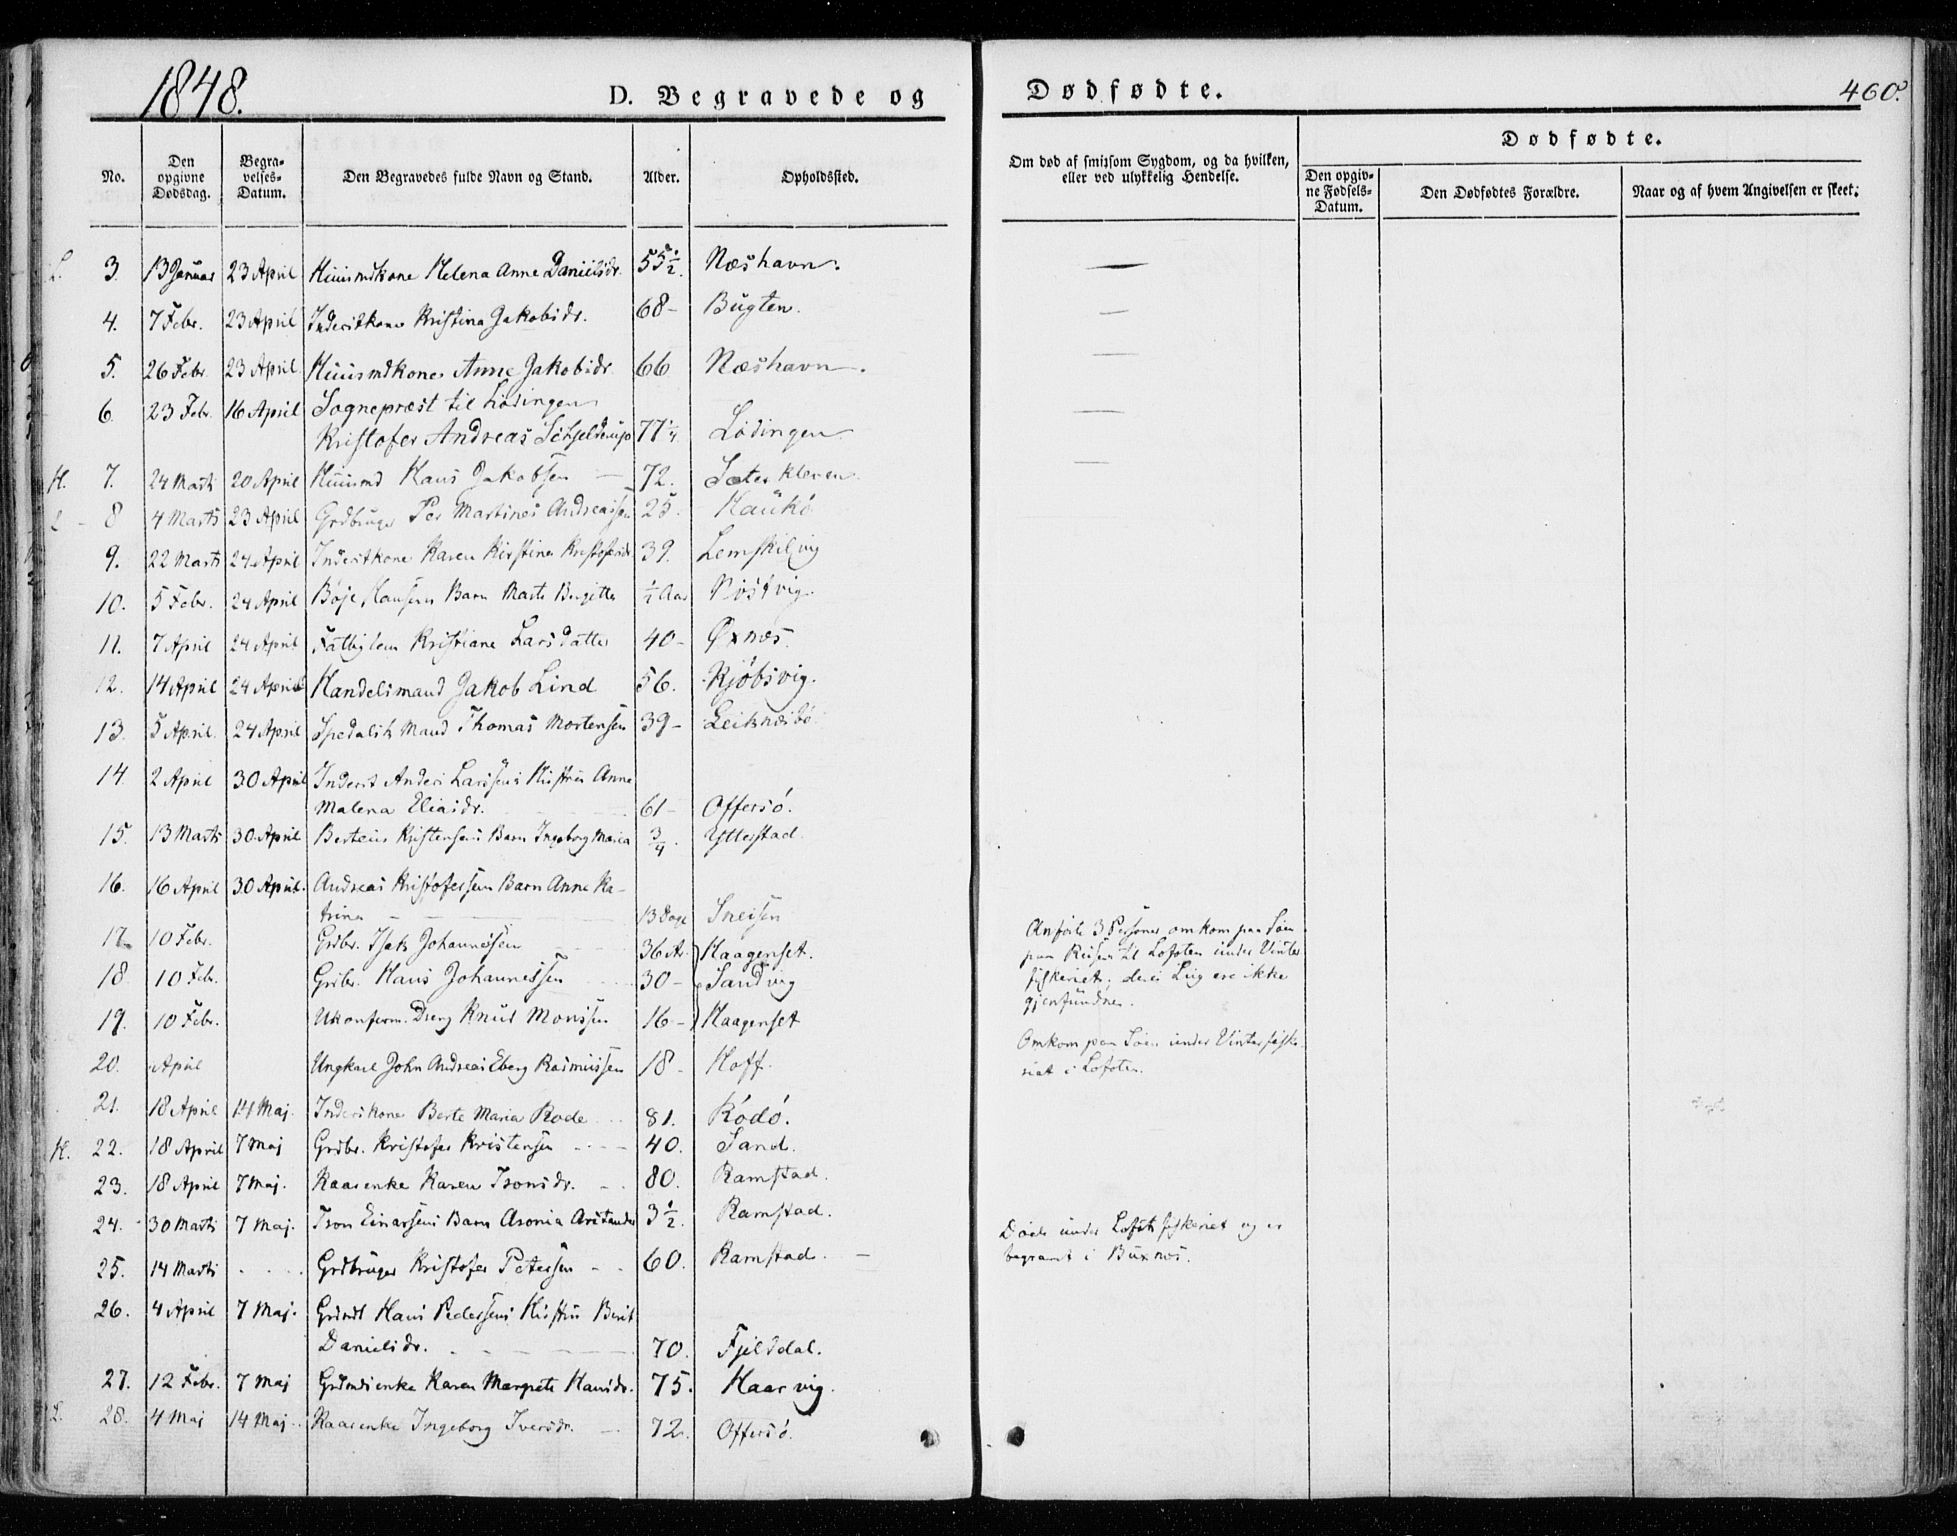 1848.
D. Begravede og
Dødfødte.
460.
No.
Den opgivne Dødsdag.
Begravelses-Datum.
Den Begravedes fulde Navn og Stand.
Alder.
Opholdssted.
Om død af smitsom Sygdom, og da hvilken, eller ved ulykkelig Hendelse.
Dødfødte.
Den opgivne Fødsels-Datum.
Den Dødfødtes Forældre.
Naar og af hvem Angivelsen er skeet.
L. 3. 13 Januar 23 April Huusmdkone Helena Anne Danielsdr. 55 1/2. Næshavn.
4. 7 Febr. 23 April Inderstkone Kristina Jakobsdr. 68- Bugten.
5. 26 Febr. 23 April Huusmdkone Anne Jakobsdr. 66 Næshavn.
6. 23 Febr. 16 April Sognepræst til Lødingen
Kristofer Andreas Schjelderup 77 1/4 Lødingen
H. 7. 24 Marts 20 April Huusmd Hans Jakobsen 72. Sæterkleven
L - 8 4 Marts 23 April Grdbruger Per Martines Andreassen 25. Haukø
9. 22 Marts 24 April Inderstkone Karen Kirstine Kristofersdr 39. Lemskilvig
10. 5 Febr. 24 April Børje Hansens Barn Marte Birgitte 1/2 Aar
11. 7 April 24 April Fattiglem Kristiane Larsdatter 40- Øxnes.
12. 14 April 24 April Handelsmand Jakob Lind 56. Kjøbsvig.
13. 5 April. 24 April Spedalsk Mand Thomas Mortensen 39- Leiknesbø
14. 2 April 30 April Inderst Anders Larssens Hustru Anne
Malena Eliasdr. 61- Offersø.
15. 13 Marts 30 April Berteus Kristensens Barn Ingeborg Maria 3/4. Ytterstad
16. 16 April 30 April. Andreas Kristofersens Barn Anne Ka-
trina 13 Dage Sneisen
17. 10 Febr. Grdbr. Isak Johannessen 36 Ar. Haagenset.
18. 10 Feb. Grdbr. Hans Johannessen 30- Sandvig
19. 10 Febr. Ukonfirm. Dreng Knud Monssen 16- Haagenset
Anførte 3 Personer omkom paa Søen
paa Reisen til Lofoten under Vinter
fiskeriet; deres Liig ere ikke
gjenfundne.
20. April Ungkarl John Andreas Eberg Rasmussen 18- Hoff.
Omkom paa Søen under Vinterfiske
riet i Lofoten.
21. 18 April 14 Maj. Inderstkone Berte Maria Rode 81. Rödö.
H. 22. 18 April 7 Maj Grdbr. Kristofer Kristensen 40. Sand.
23. 18 April 7 Maj. Kaarenke Karen Tronsdr. 80. Ramstad.
24. 30 Marts 7 Maj. Tron Einarsens Barn Asonia 3 1/2. Ramstad.
25. 14 Marts Grdbruger Kristofer Petersen 60. Ramstad.
Døde under Lofotfiskeriet og er
begravet i Buxnes.
26. 4 April 7 Maj. Grdmd Hans Pedersens Hustru Berit
Danielsdr. 70. Fjelddal.
27. 12 Febr. 7 Maj Grdmdsenke Karen Margrete Hansdr. 75. Haarvig.
L. 28. 4 Maj 14 Maj. Kaarenke Ingeborg Iversdr. 72. Offersø.